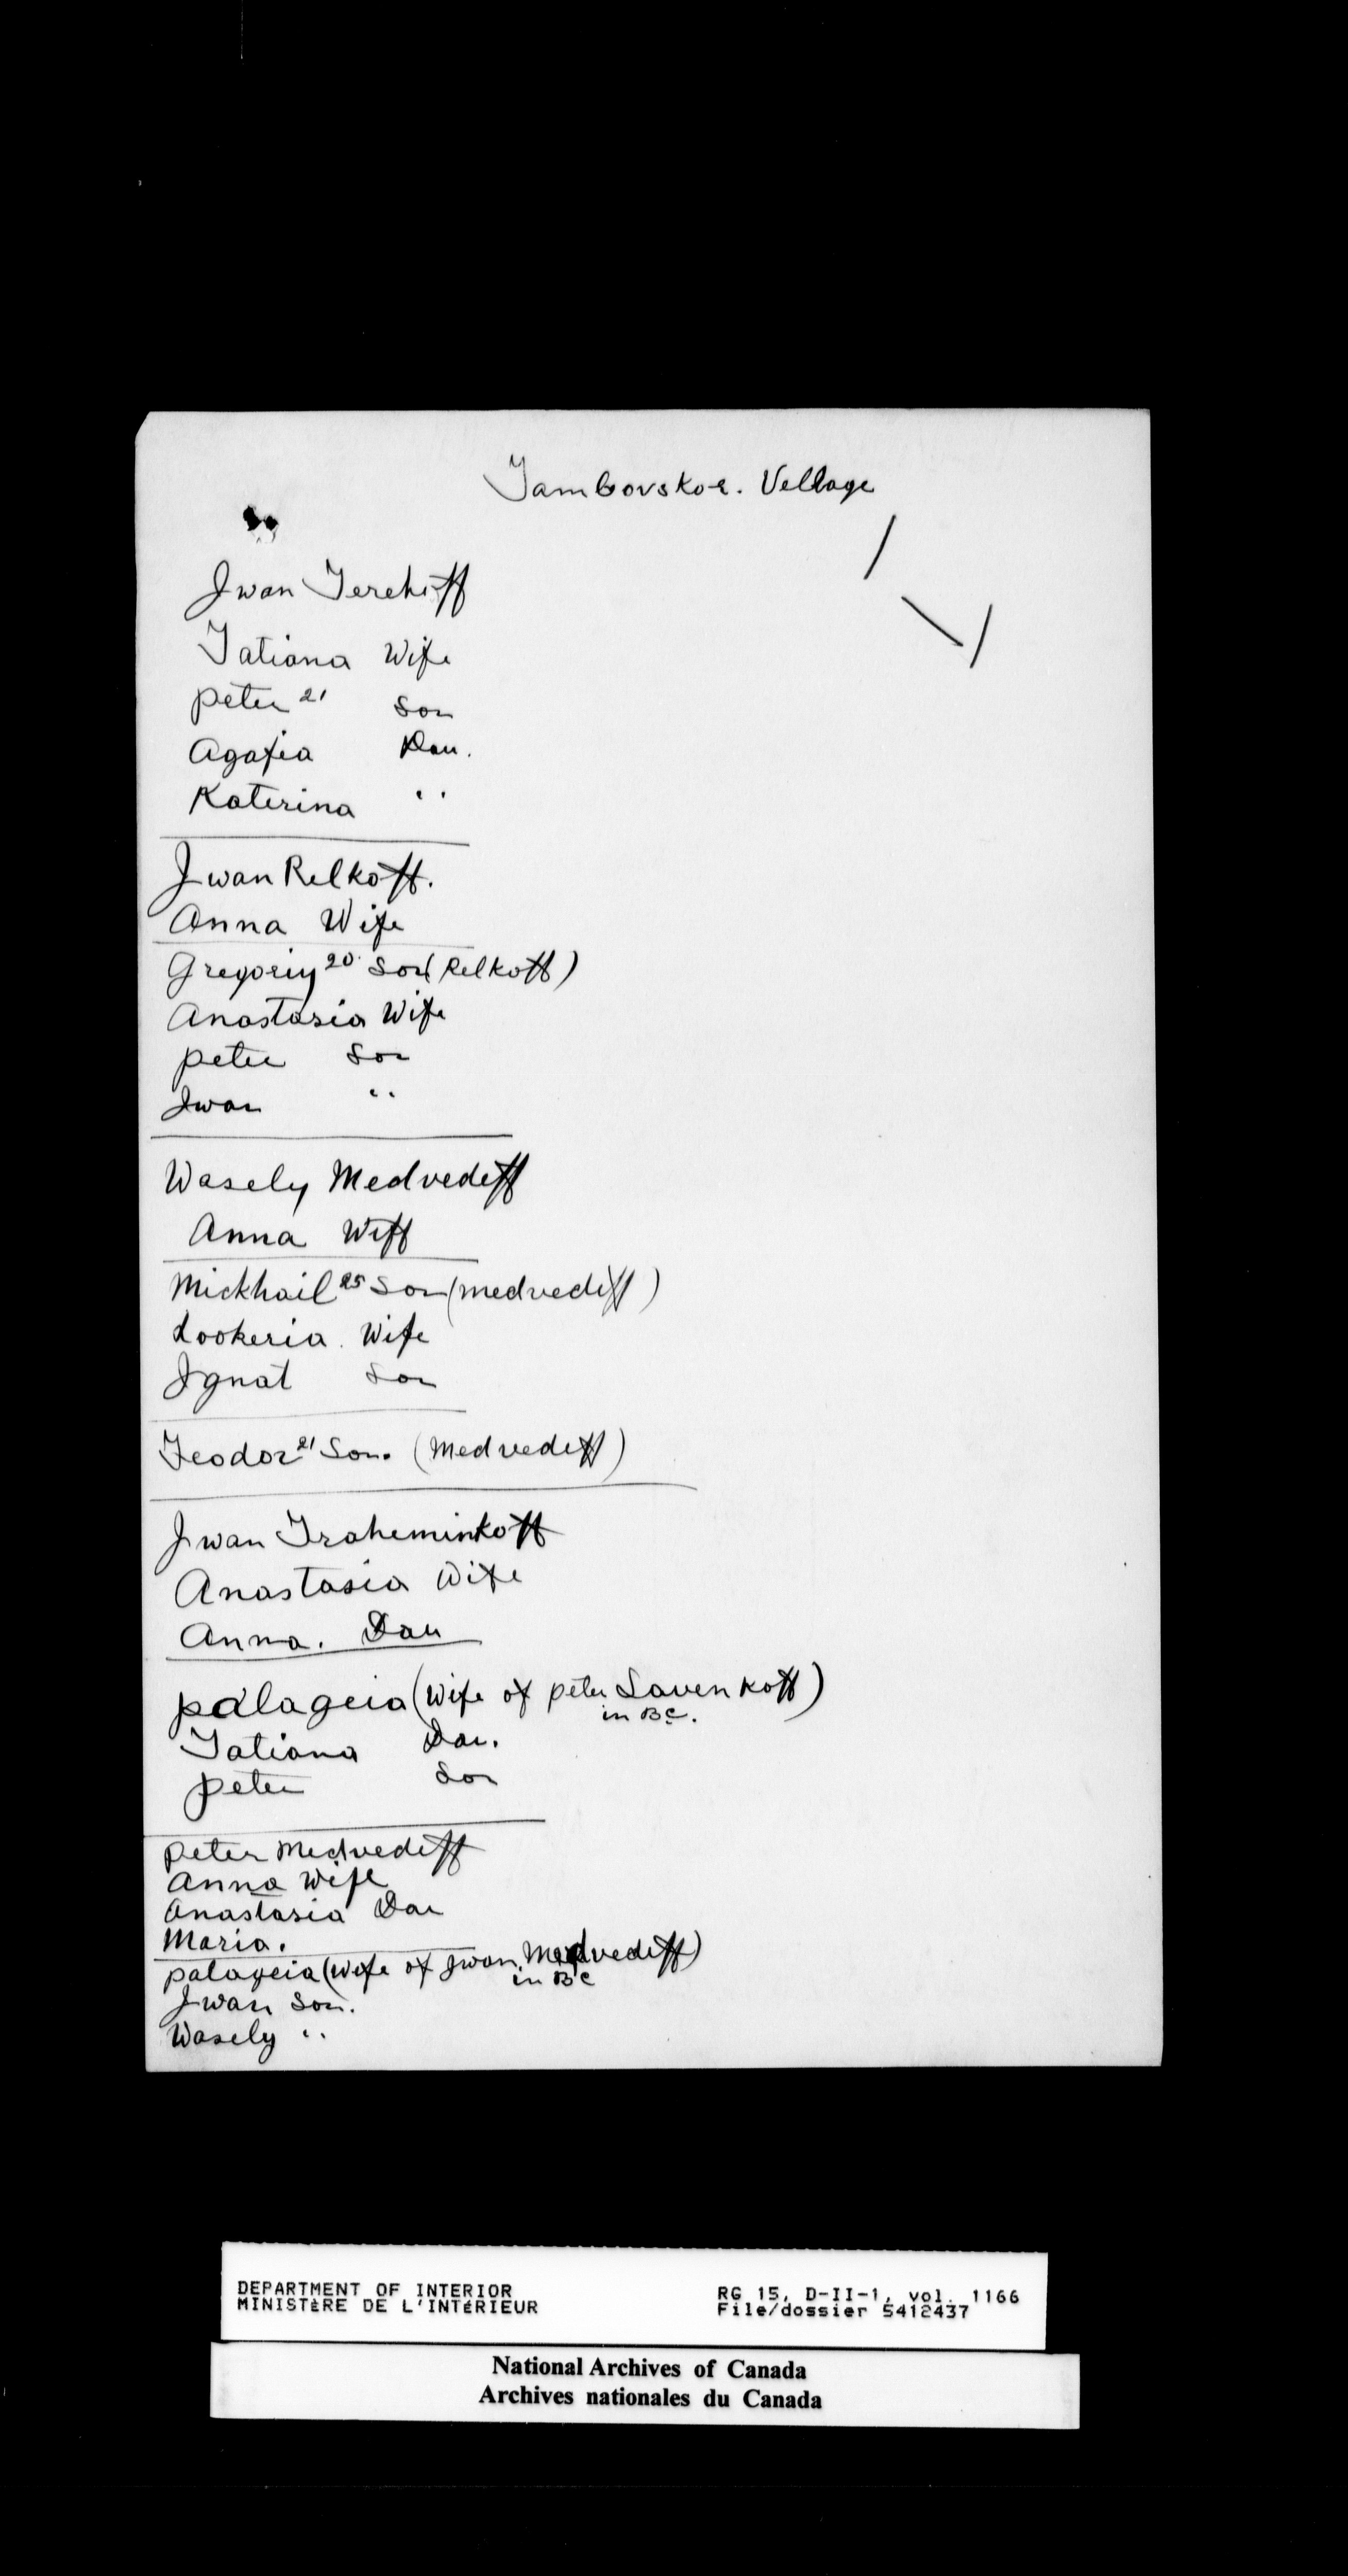 Tambovskoe. Vellage
Iwan Terehoff
Tatiana Wife
peter 21 Son
Agafia Dau.
Katerina "
Iwan Relkoff.
Anna Wife
Gregoriy 20 Son (Relkoff)
Anastasia Wife
peter Son
Iwan "
Wasely Medvedeff
Anna Wiff
Mickhail 25 Son (medvedeff)
Lookeria. Wife
Ignat Son
Feodor 21 Son. (Medvedeff)
Iwan Traheminkoff
Anastasia Wife
Anna. Dau
palageia (Wife of peter Savenkoff)
in BC.
Tatiana Dau.
peter Son
peter Medvedeff
Anna Wife
Anastasia Dau
Maria.
palageia (Wife of Iwan Medvedeff)
in BC
Iwan Son.
Wasely "
DEPARTMENT OF INTERIOR
MINISTÈRE DE L'INTÉRIEUR
RG 15, D-II-1, vol. 1166
File/dossier 5412437
National Archives of Canada
Archives nationales du Canada